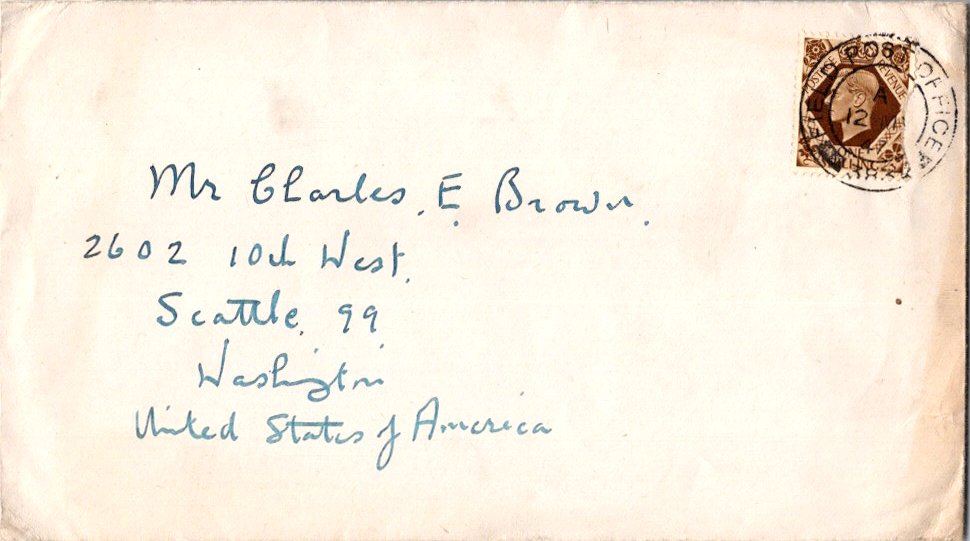 FIELD POST OFFICE
A
12
POSTAGE REVENUE
ONE SHILLING
Mr Charles. E. Brown.
2602 10th West.
Seattle. 99
Washington
United States of America